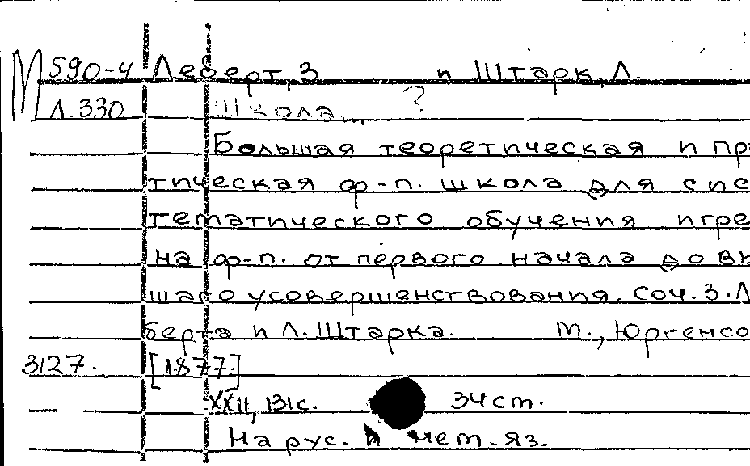 М 590-4 Леберт, З и Штарк, Л.
Л.330 Школа... ?
Большая теоретическая и пр
тическая ф-п. школа для сис
тематического обучения игре
на ф-п. от первого начала до вы
шаго усовершенствования. Соч. З. Л
берта и Л. Штарка. М., Юргенсо
3127. [1877]
XXII, 131с. 34 ст.
На рус. и нем. яз.